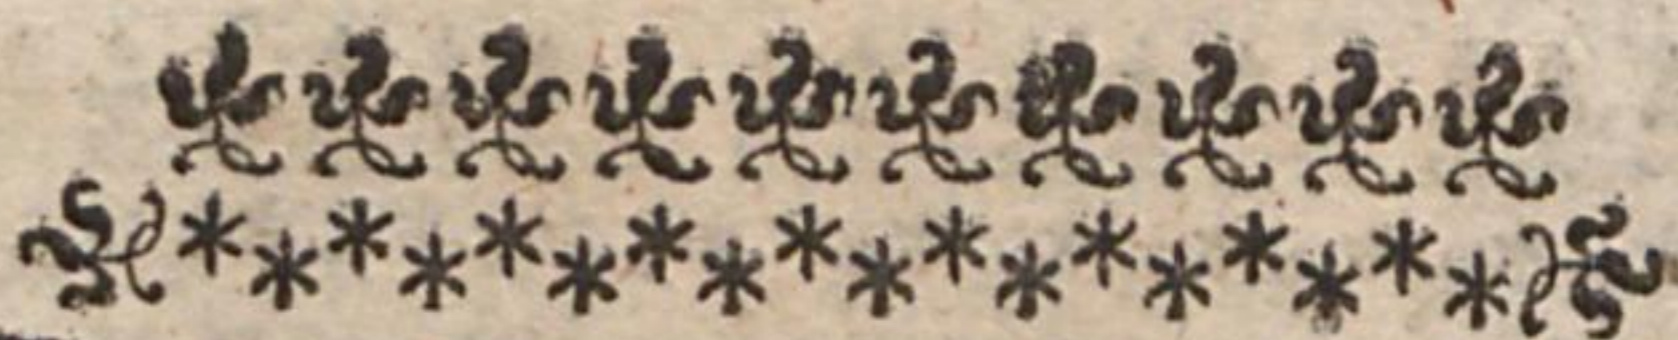 * * * * * * * * * * * * * * * * * *